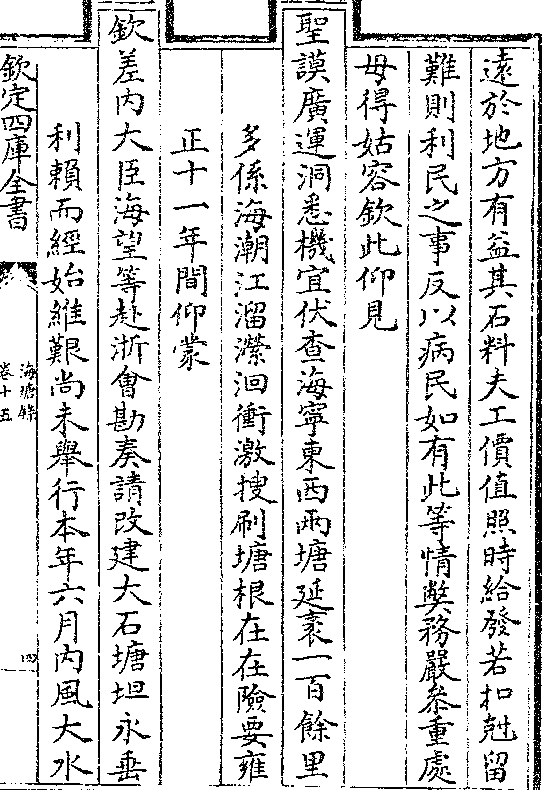 遠於地方有益其石料夫工價值照時給發若扣尅留
難則利民之事反以病民如有此等情獘務嚴叅重處
毋得姑容欽此仰見
聖謨廣運洞悉機宜伏查海寧東西兩塘延袤一百餘里
多係海潮江溜瀠洄衝激搜刷塘根在在險要雍
正十一年間仰蒙
欽差内大臣海望等赴浙會勘奏請改建大石塘坦永垂
利賴而經始維艱尚未舉行本年六月内風大水
欽定四庫全書
海塘錄
卷十五
四